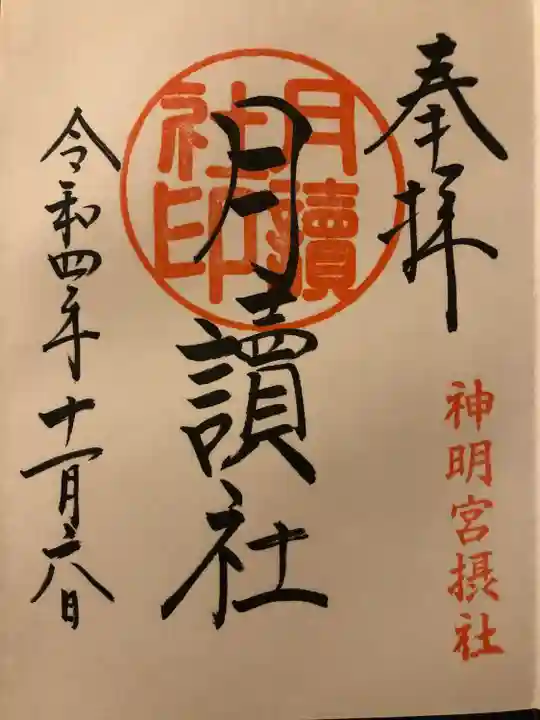 奉拝
神明宮摂社
月讀社
月讀社印
令和四年十一月六日